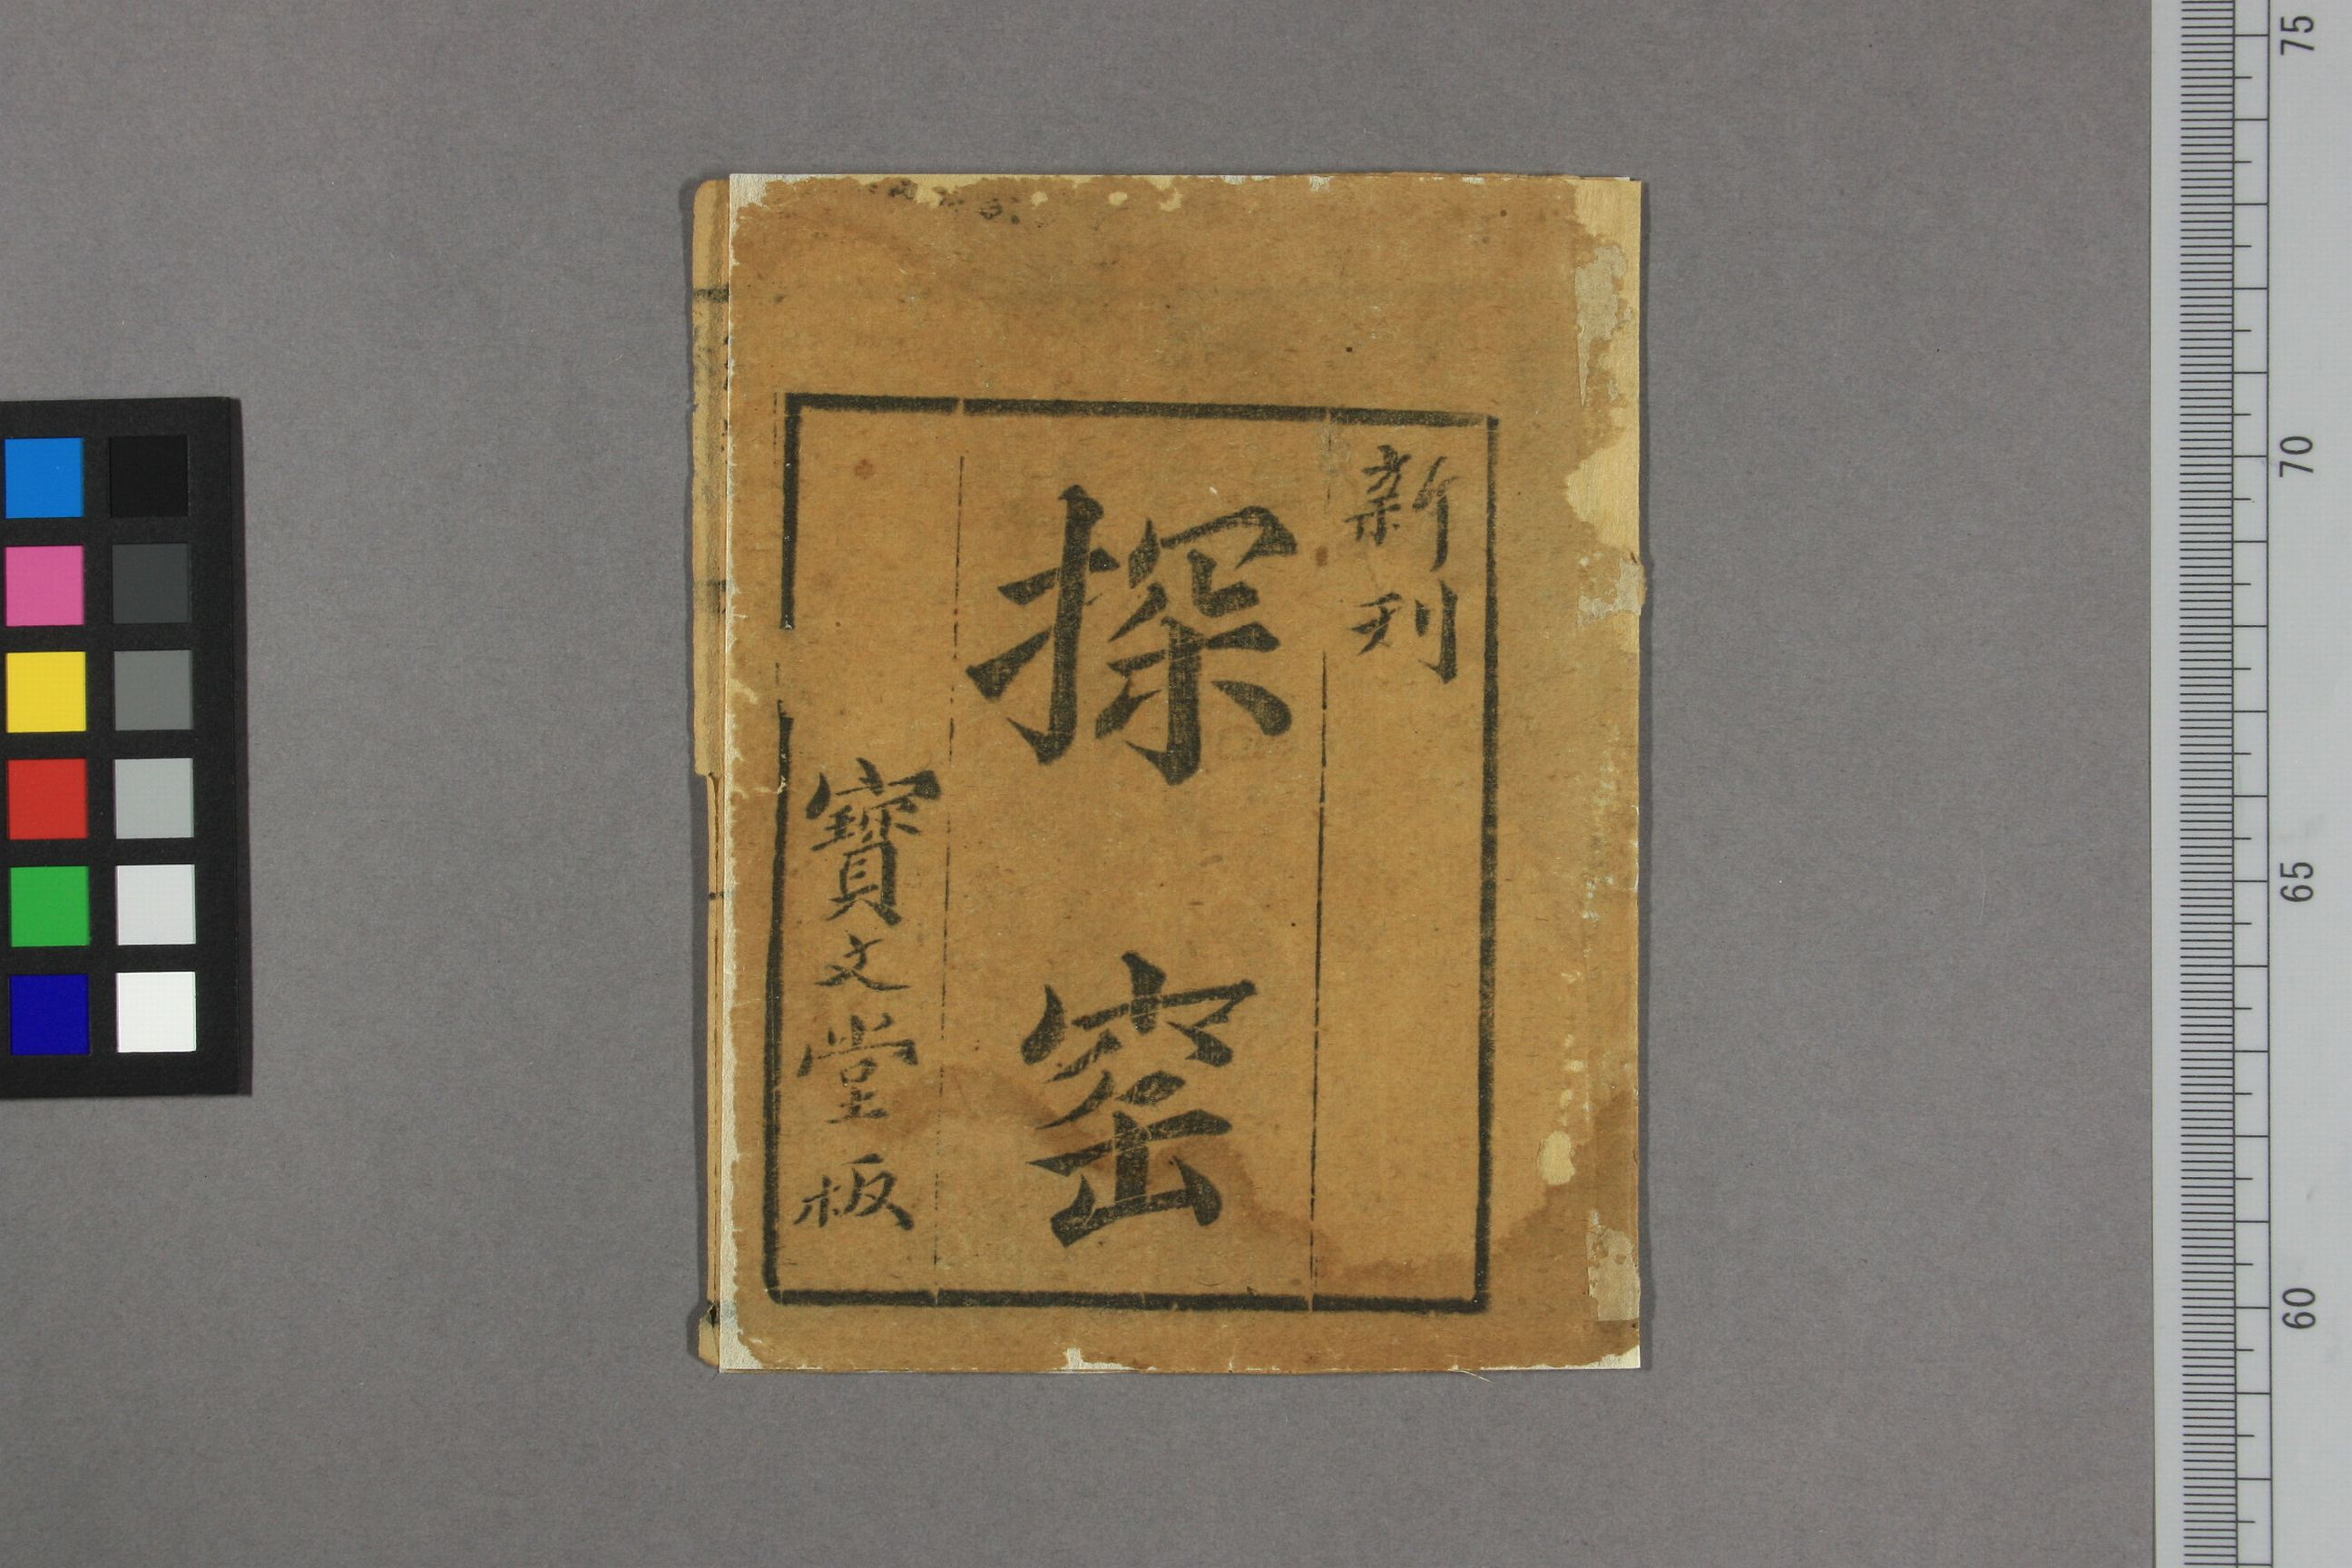 新刊
探窑
寳文堂板
75
70
65
60